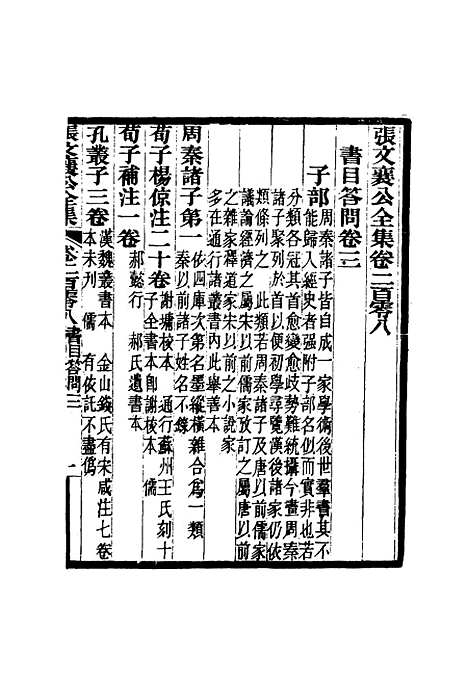 張文襄公全集卷二百零八
書目答問卷三
子部周秦諸子皆自成一家學術後世羣書其不
能歸入經史者强附子部名似而實非也若
分類各冠其首愈變愈歧勢難統攝今畫周秦
諸子聚列於首以便初學尋覽漢後諸家仍依
類條列之　此類若周秦諸子及唐以前儒家
議論經濟之屬宋以前儒家攷訂之屬唐以前
之雜家釋道家宋以前之小說家
多在通行諸叢書內此舉善本
周秦諸子第一依四庫次第名墨縱橫雜合爲一類
秦以前諸子姓名不錄
荀子楊倞注二十卷謝墉校本　通行蘇州王氏刻十
子全書本卽謝校本　儒
荀子補注一卷郝懿行　郝氏遺書本
孔叢子三卷漢魏叢書本　金山錢氏有宋咸注七卷
本未刊　儒　有依託不盡僞
張文襄公全集　卷二百零八　書目答問三　一